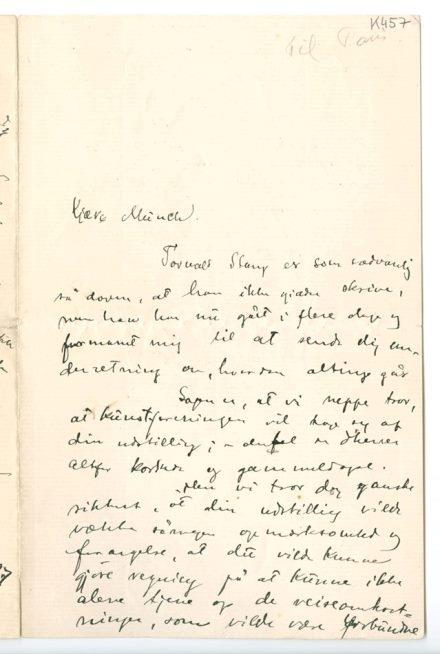 K457
Til Paris
Kjære Münch.
Torvald Stang er som sædvanlig
så doven, at han ikke gider skrive,
men han har nu gått i flere dage og
formant mig til at sende dig un-
derretning om, hvordan alting går
Sagen er, at vi neppe tror,
at Kunstforeningen vil tage sig af
din udstilling; – er disse
altfor og gammeldagse.
Men vi tror dog ganske
sikkert, at din udstilling vilde
vække såmegen opmærksomhed og
forargelse, at du vilde kunne
gjøre regning på at kunne ikke
alene tjene op de reiseomkost-
ninger, som vilde være forbundne